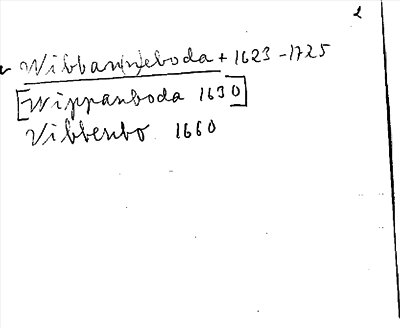 2
Wibban(n)eboda + 1623-1725
[Wippanboda 1630]
Vibbenbo 1660